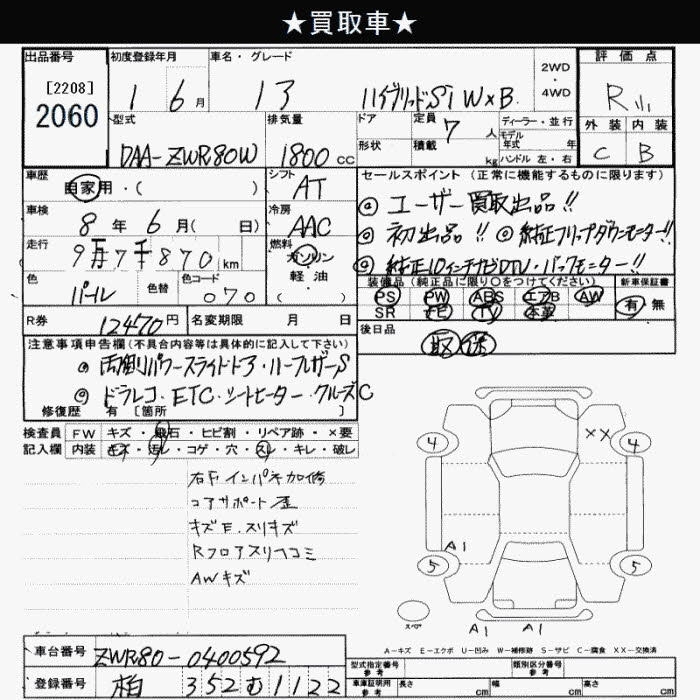 ★買取車★
出品番号 初度登録年月 車名・グレード 2WD ・ 4WD 評価点
[2208] 2060
1 6月 13 ハイブリッドSi W×B R
型式 排気量 ドア 定員 7人 ディーラー・並行 外装 内装
DAA-ZWR80W 1800cc 形状 積載 kg モデル年式 年 C B
ハンドル 左・右
車歴 自家用・( ) シフト AT セールスポイント (正常に機能するものに限ります)
車検 8年 6月( 日) 冷房 AAC
@ ユーザー買取出品!!
@ 初出品!! @ 純正フリップダウンモニター!!
@ 純正10インチナビDTV・バックモニター!!
走行 9万7千870km 燃料 ガソリン 軽油 ( )
色 パール 色替 色コード 070
装備品 (純正品に限り○をつけてください) 新車保証書
PS PW ABS エアB AW 有 無
SR TV 本革
R券 12470円 名変期限 月 日 後日品
取 送
注意事項申告欄 (不具合内容等は具体的に記入して下さい)
@ 両側パワースライドドア・ハーフレザーS
@ ドラレコ・ETC・シートヒーター・クルーズC
修復歴 有 [箇所 ]
検査員 FW キズ・飛石・ヒビ割・リペア跡・×要
記入欄 内装 キズ・汚レ・コゲ・穴・スレ・キレ・破レ
右Fインパネ加修
コアサポート歪
キズE.スリキズ
Rフロアスリヘコミ
AWキズ
4 ×× 4
A1
5 5
スペア A1 A1
A-キズ E-エクボ U-凹み W-補修跡 S-サビ C-腐食 XX-交換済
車台番号 ZWR80-0400592
登録番号 柏 352 む 1122
型式指定番号 参考 類別区分番号 参考
車庫証明用 参考 長さ cm 幅 cm 高さ cm